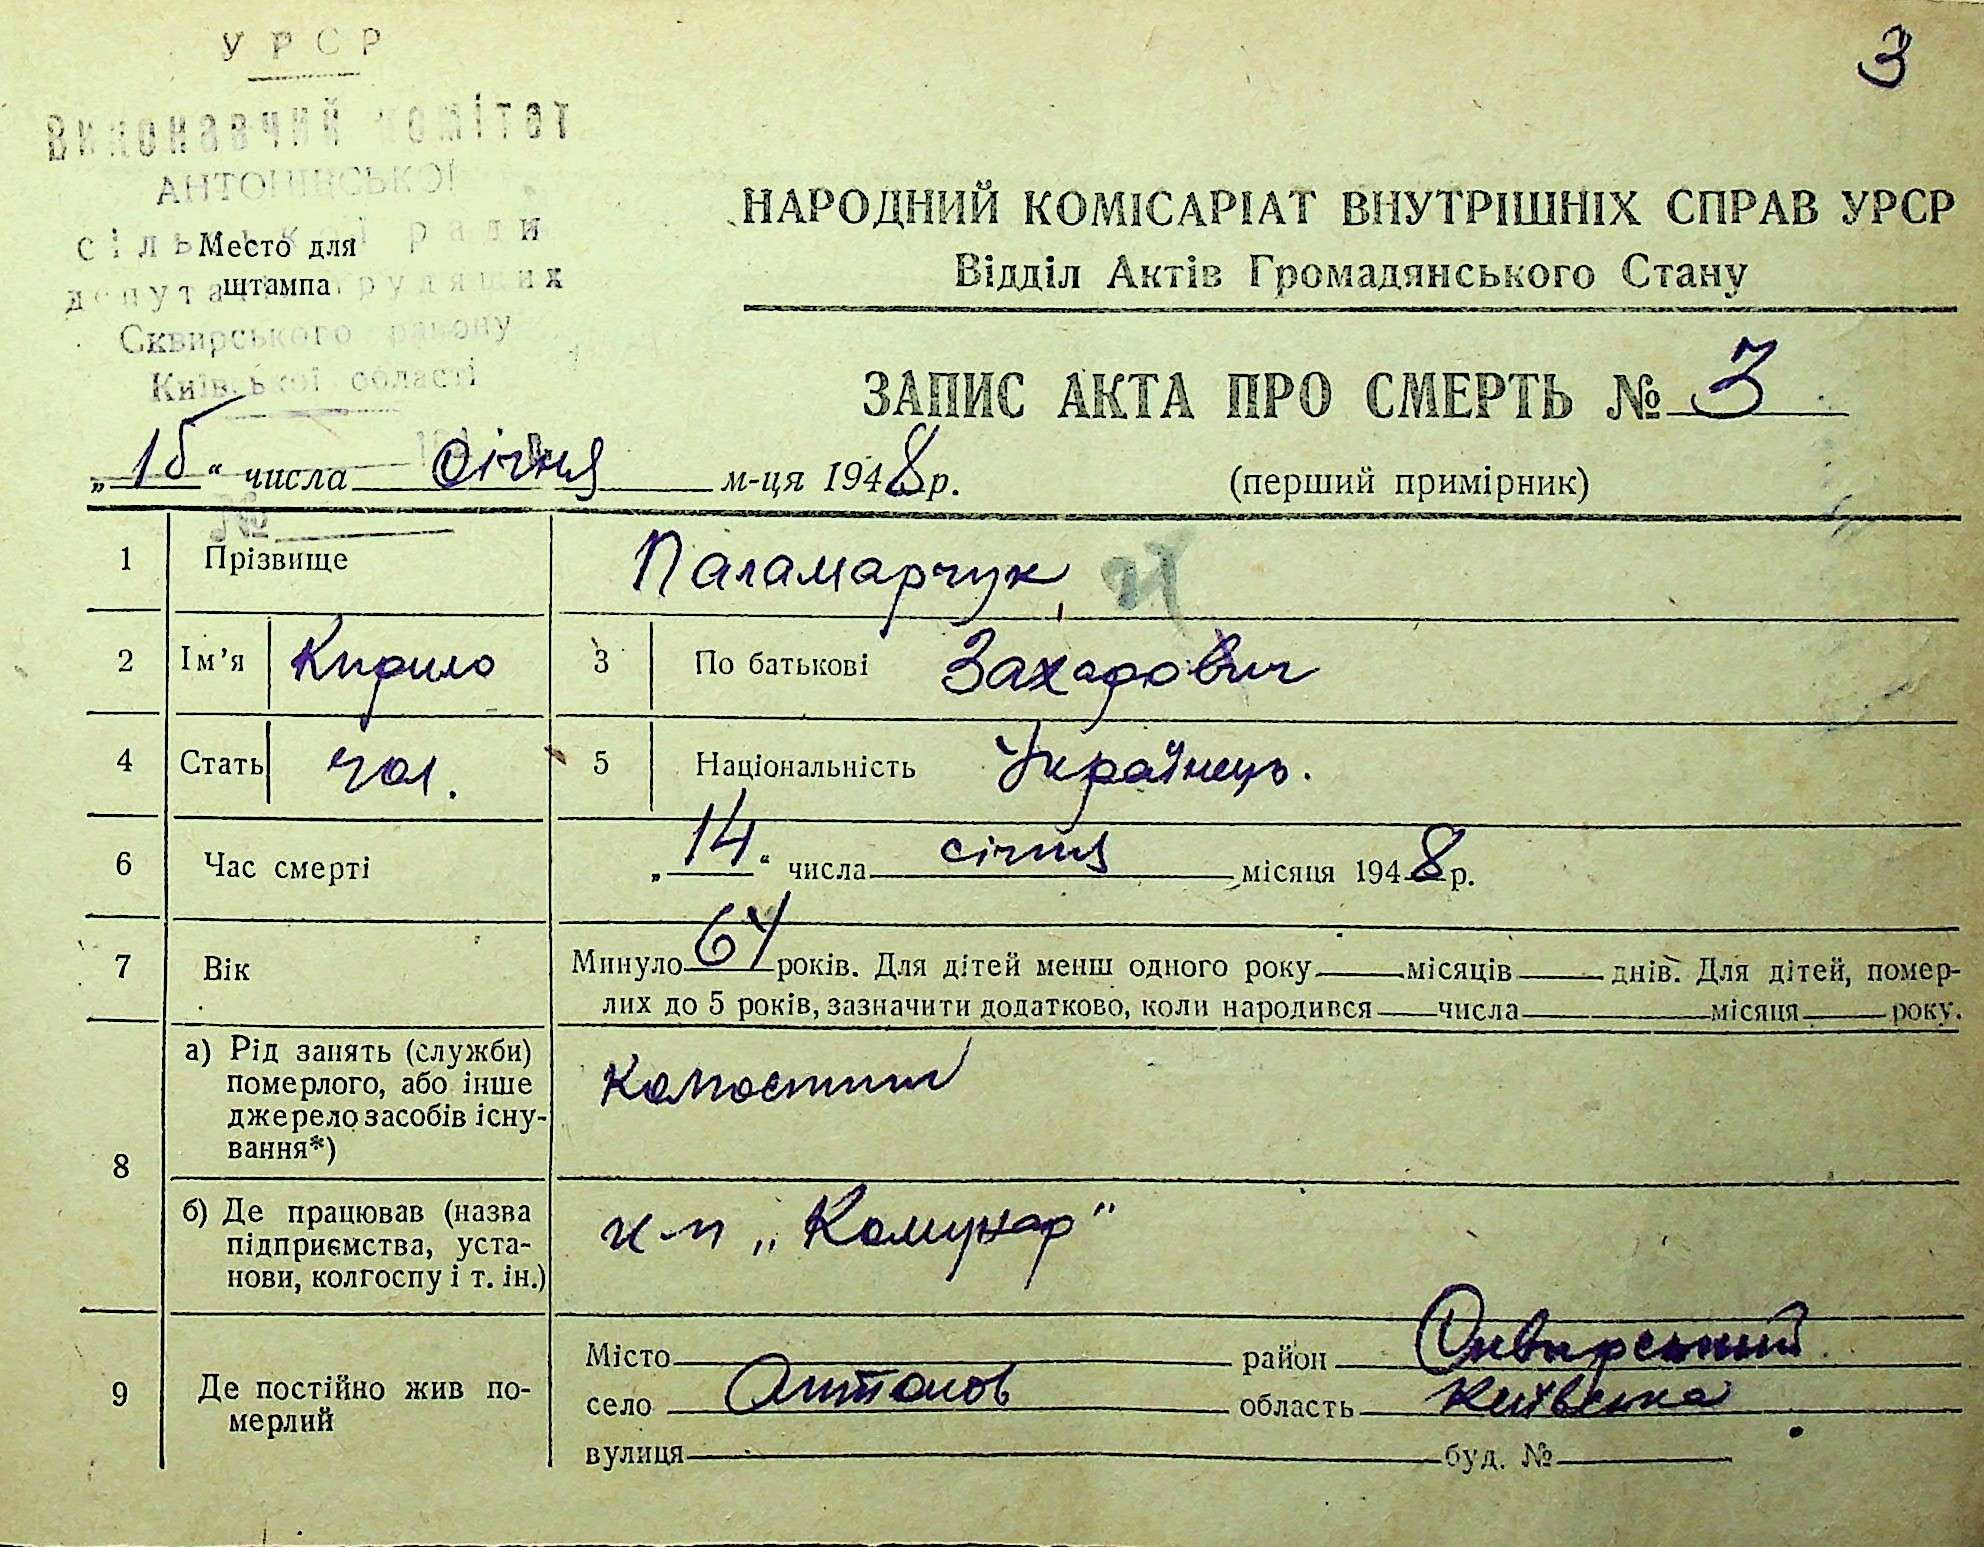 3
УРСР
Виконавчий комітет
АНТОНІВСЬКОЇ
сільської ради
депутатів трудящих
Сквирського району
Київської області
194
№
Место для
штампа
НАРОДНИЙ КОМІСАРІАТ ВНУТРІШНІХ СПРАВ УРСР
Відділ Актів Громадянського Стану
ЗАПИС АКТА ПРО СМЕРТЬ № 3
„15“ числа січня м-ця 1948 р. (перший примірник)
1 Прізвище Паламарчук
2 Ім’я Кирило 3 По батькові Захарович
4 Стать чол. 5 Національність Українець.
6 Час смерті „14“ числа січня місяця 1948 р.
7 Вік Минуло 64 років. Для дітей менш одного року місяців днів. Для дітей, помер-
лих до 5 років, зазначити додатково, коли народився числа місяця року.
8 а) Рід занять (служби)
померлого, або інше
джерело засобів існу-
вання*)
б) Де працював (назва
підприємства, уста-
нови, колгоспу і т. ін.)
к-п „Комунар“
9 Де постійно жив по-
мерлий
Місто район Сквирський
село Антонов область Київська
вулиця буд. №